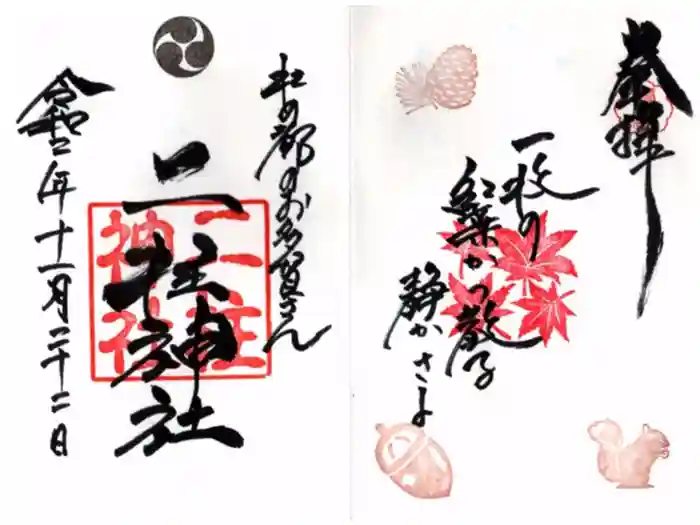 奉拝
一枚の
紅葉かつ散る
静かさよ
杜の都のお多賀さん
二柱神社
二柱
神社
令和二年十一月二十二日